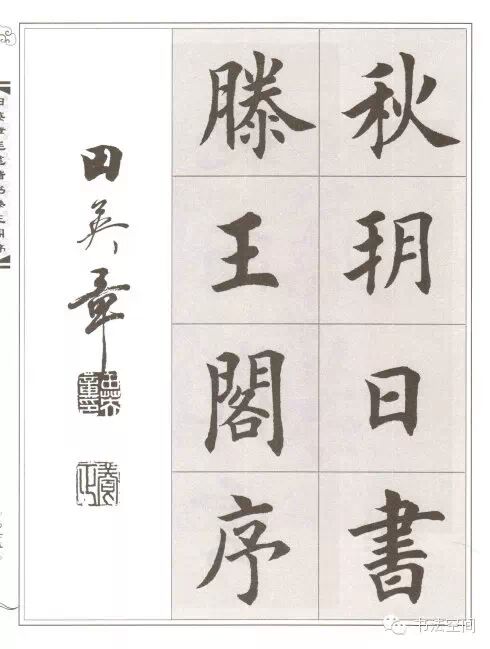 秋玥日書
滕王閣序
田英章
书法空间